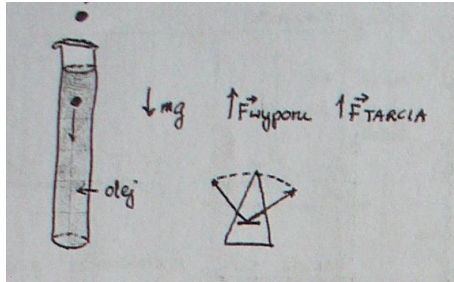 ↓mg ↑F⃗wyporu ↑F⃗TARCIA
olej